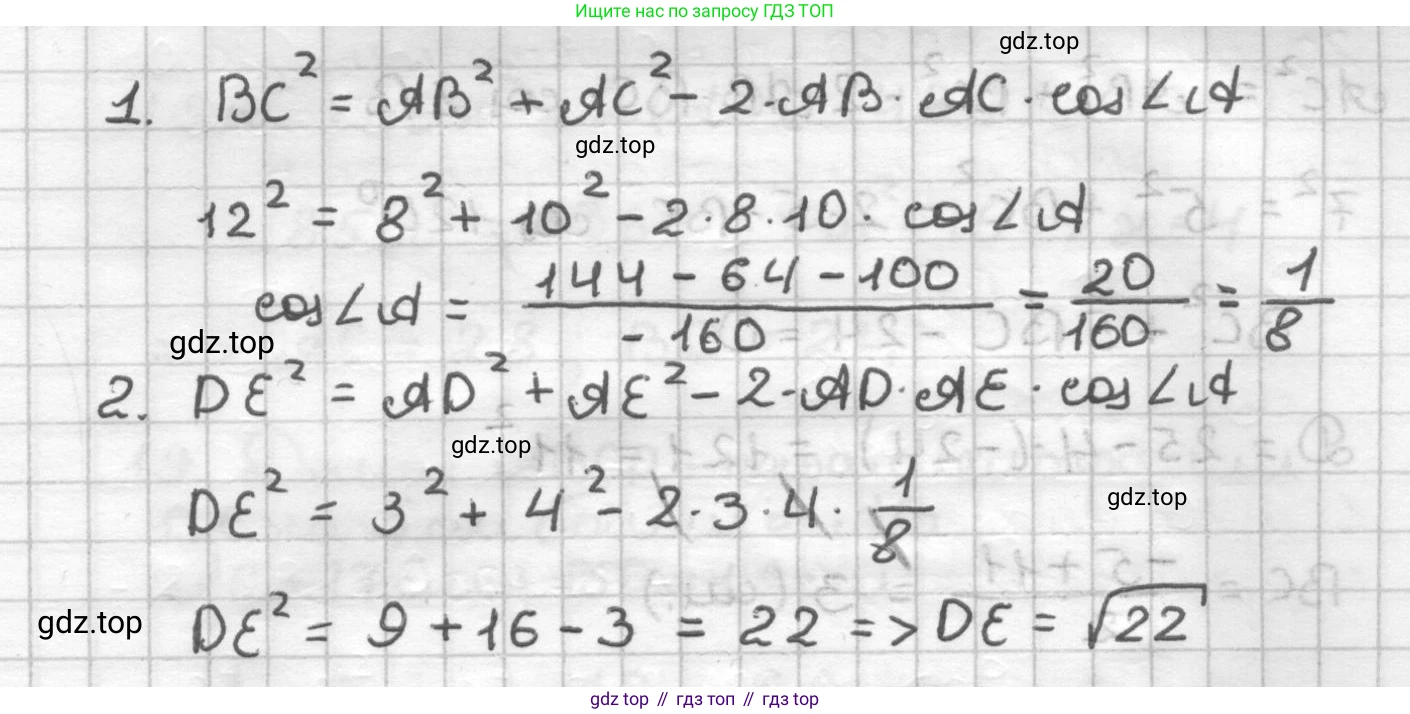 Ищите нас по запросу ГДЗ ТОП
gdz.top
1. BC² = AB² + AC² - 2·AB·AC·cos∠A
gdz.top
12² = 8² + 10² - 2·8·10·cos∠A
cos∠A = (144 - 64 - 100)/(-160) = 20/160 = 1/8
gdz.top
2. DE² = AD² + AE² - 2·AD·AE·cos∠A
gdz.top
DE² = 3² + 4² - 2·3·4·1/8
gdz.top
gdz.top
DE² = 9 + 16 - 3 = 22 => DE = √22
gdz.top // гдз топ // гдз top